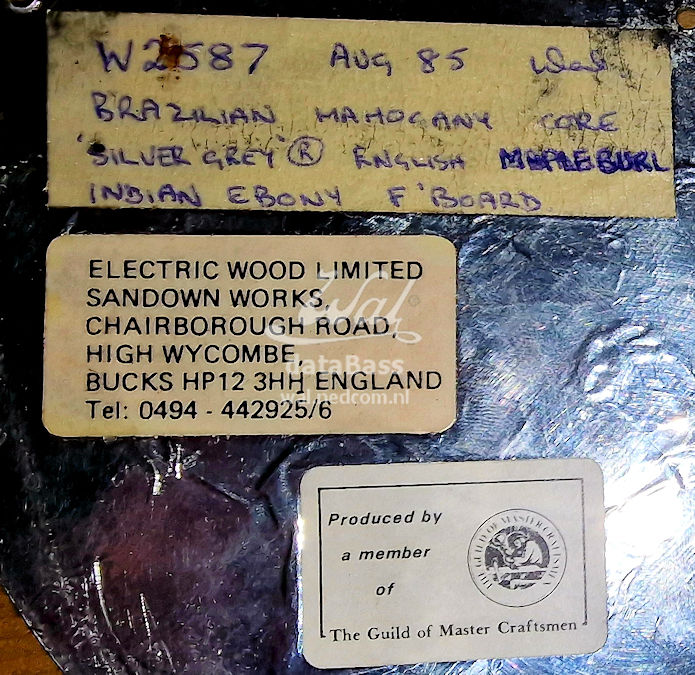 W2587 AUG 85 Wal
BRAZILIAN MAHOGANY CORE
'SILVER GREY' ® ENGLISH MAPLE BURL
INDIAN EBONY F'BOARD
ELECTRIC WOOD LIMITED
SANDOWN WORKS,
CHAIRBOROUGH ROAD,
HIGH WYCOMBE
BUCKS HP12 3HH ENGLAND
Tel: 0494 - 442925/6
Wal
dataBass
wal.nedcom.nl
Produced by
a member
of
The Guild of Master Craftsmen
THE GUILD OF MASTER CRAFTSMEN